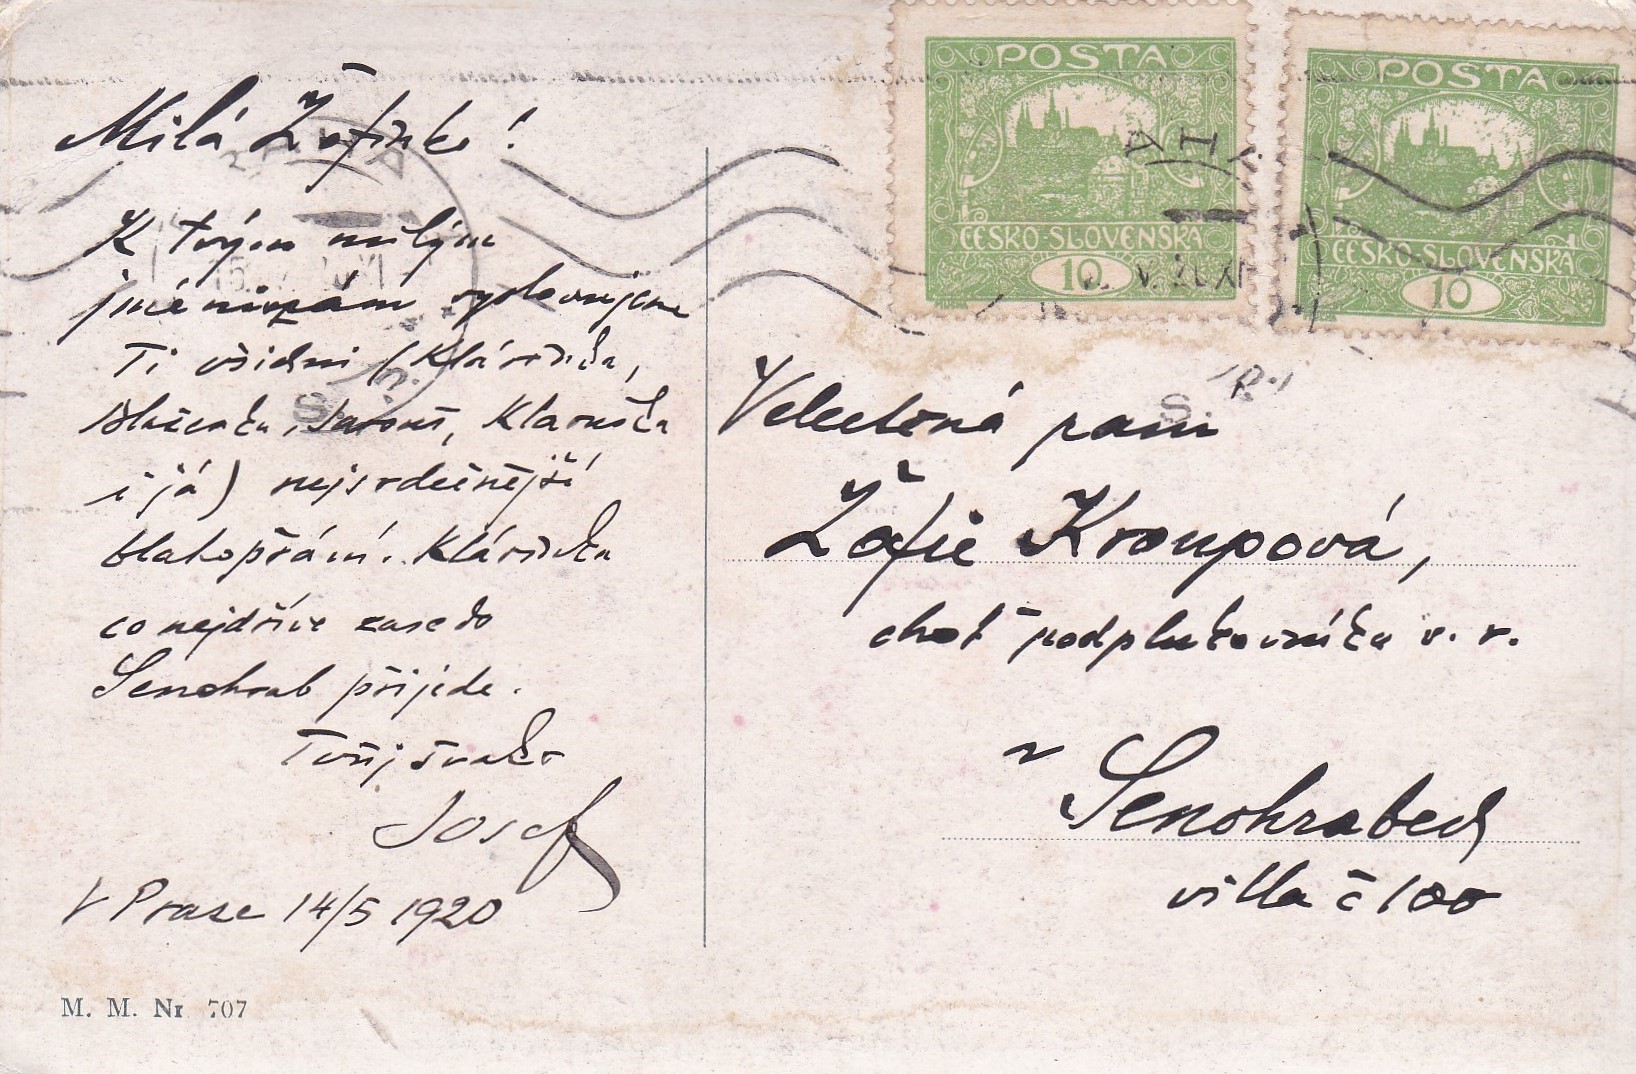 Milá Žofinko!
K tvým milým
jmeninám vyslovujeme
Ti všichni (Klárinka,
Jaronš, Klaruška
i já) nejsrdečnější
blahopřání. Klárinka
co nejdříve zase do
Senohrab přijede.
Tvůj švakr
Josef
V Praze 14/5 1920
M. M. Nr 707
POSTA
ČESKO-SLOVENSKÁ
10
POSTA
ČESKO-SLOVENSKÁ
10
Velectěná paní
Žofie Kroupová,
choť podplukovníka v. v.
v Senohrabech
villa č 100